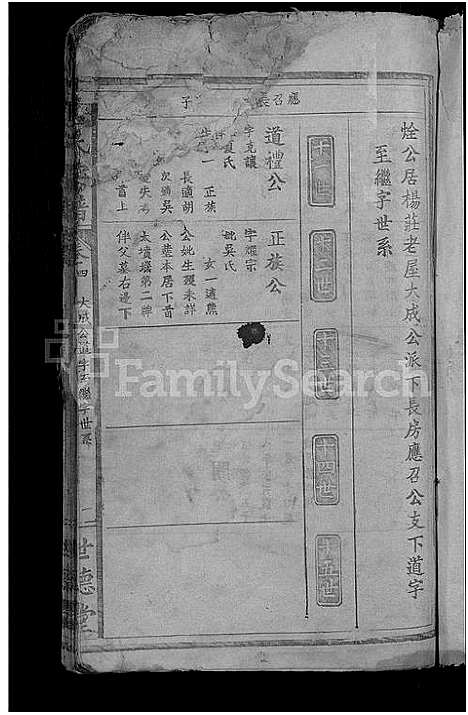 烇公居楊莊老屋大成公派下長房應召公支下道字
至繼字世系
十一世
十二世
十三世
十四世
十五世
應召長子
道禮公
字克讓
娶夏氏
生一
正族
長適胡
次適吳
失考
首上
正族公
字耀宗
妣吳氏
女一適熊
公妣生歿未詳
公葬本居下首
太墳塝第二牌
伴父墓右邊下
大成公道字至繼字世系
世德堂
FamilySearch